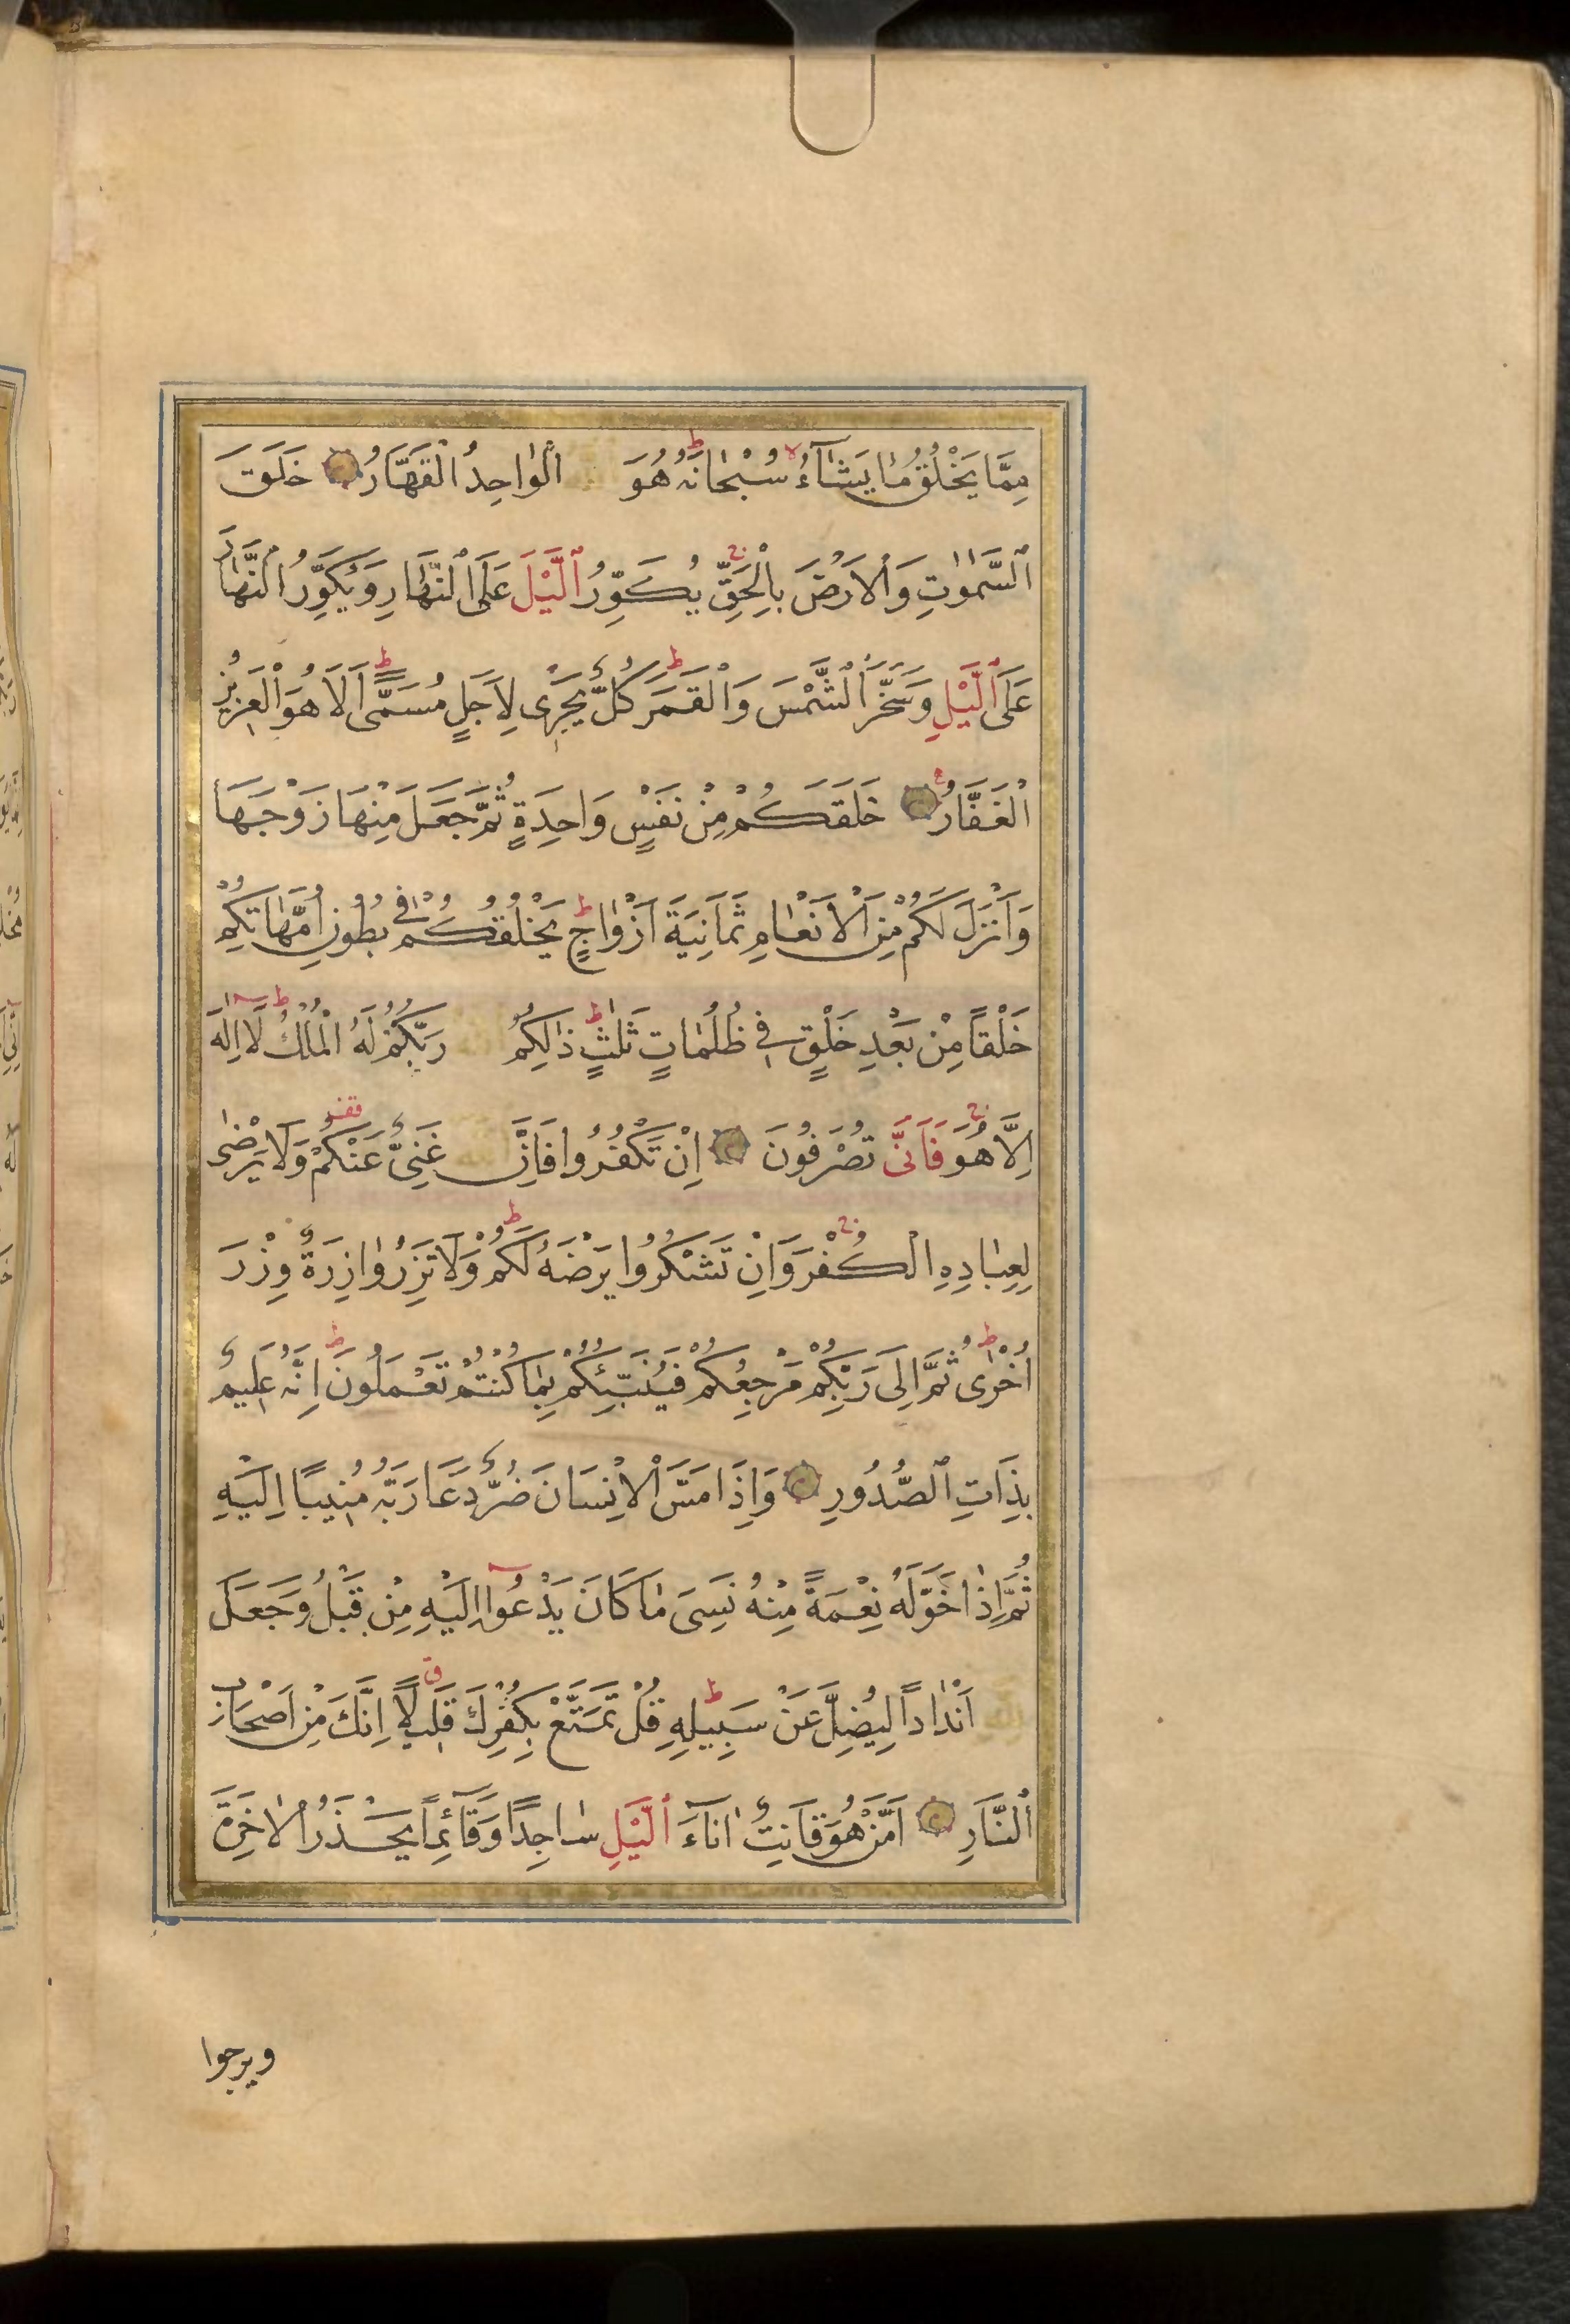 مِمَّا يَخْلُقُ مَا يَشَآءُ سُبْحَانَهُ هُوَ الْوَاحِدُ الْقَهَّارُ خَلَقَ
السَّمٰوَاتِ وَالْاَرْضَ بِالْحَقِّ يُكَوِّرُ الَّيْلَ عَلَى النَّهَارِ وَيُكَوِّرُ النَّهَارَ
عَلَى الَّيْلِ وَسَخَّرَ الشَّمْسَ وَالْقَمَرَ كُلٌّ يَجْرِى لِاَجَلٍ مُسَمًّى اَلَا هُوَ الْعَزِيزُ
الْغَفَّارُ خَلَقَكُمْ مِنْ نَفْسٍ وَاحِدَةٍ ثُمَّ جَعَلَ مِنْهَا زَوْجَهَا
وَاَنْزَلَ لَكُمْ مِنَ الْاَنْعَامِ ثَمَانِيَةَ اَزْوَاجٍ يَخْلُقُكُمْ فِى بُطُونِ اُمَّهَاتِكُمْ
خَلْقًا مِنْ بَعْدِ خَلْقٍ فِى ظُلُمَاتٍ ثَلٰثٍ ذٰلِكُمُ رَبُّكُمْ لَهُ الْمُلْكُ لَا اِلٰهَ
اِلَّا هُوَ فَاَنَّى تُصْرَفُونَ اِنْ تَكْفُرُوا فَاِنَّ غَنِىٌّ عَنْكُمْ وَلَا يَرْضٰى
لِعِبَادِهِ الْكُفْرَ وَاِنْ تَشْكُرُوا يَرْضَهُ لَكُمْ وَلَا تَزِرُ وَازِرَةٌ وِزْرَ
اُخْرٰى ثُمَّ اِلٰى رَبِّكُمْ مَرْجِعُكُمْ فَيُنَبِّئُكُمْ بِمَا كُنْتُمْ تَعْمَلُونَ اِنَّهُ عَلِيمٌ
بِذَاتِ الصُّدُورِ وَاِذَا مَسَّ الْاِنْسَانَ ضُرٌّ دَعَا رَبَّهُ مُنِيبًا اِلَيْهِ
ثُمَّ اِذَا خَوَّلَهُ نِعْمَةً مِنْهُ نَسِىَ مَا كَانَ يَدْعُوا اِلَيْهِ مِنْ قَبْلُ وَجَعَلَ
اَنْدَادًا لِيُضِلَّ عَنْ سَبِيلِهِ قُلْ تَمَتَّعْ بِكُفْرِكَ قَلِيلًا اِنَّكَ مِنْ اَصْحَابِ
النَّارِ اَمَّنْ هُوَ قَانِتٌ اٰنَآءَ الَّيْلِ سَاجِدًا وَقَآئِمًا يَحْذَرُ الْاٰخِرَةَ
ويرجوا